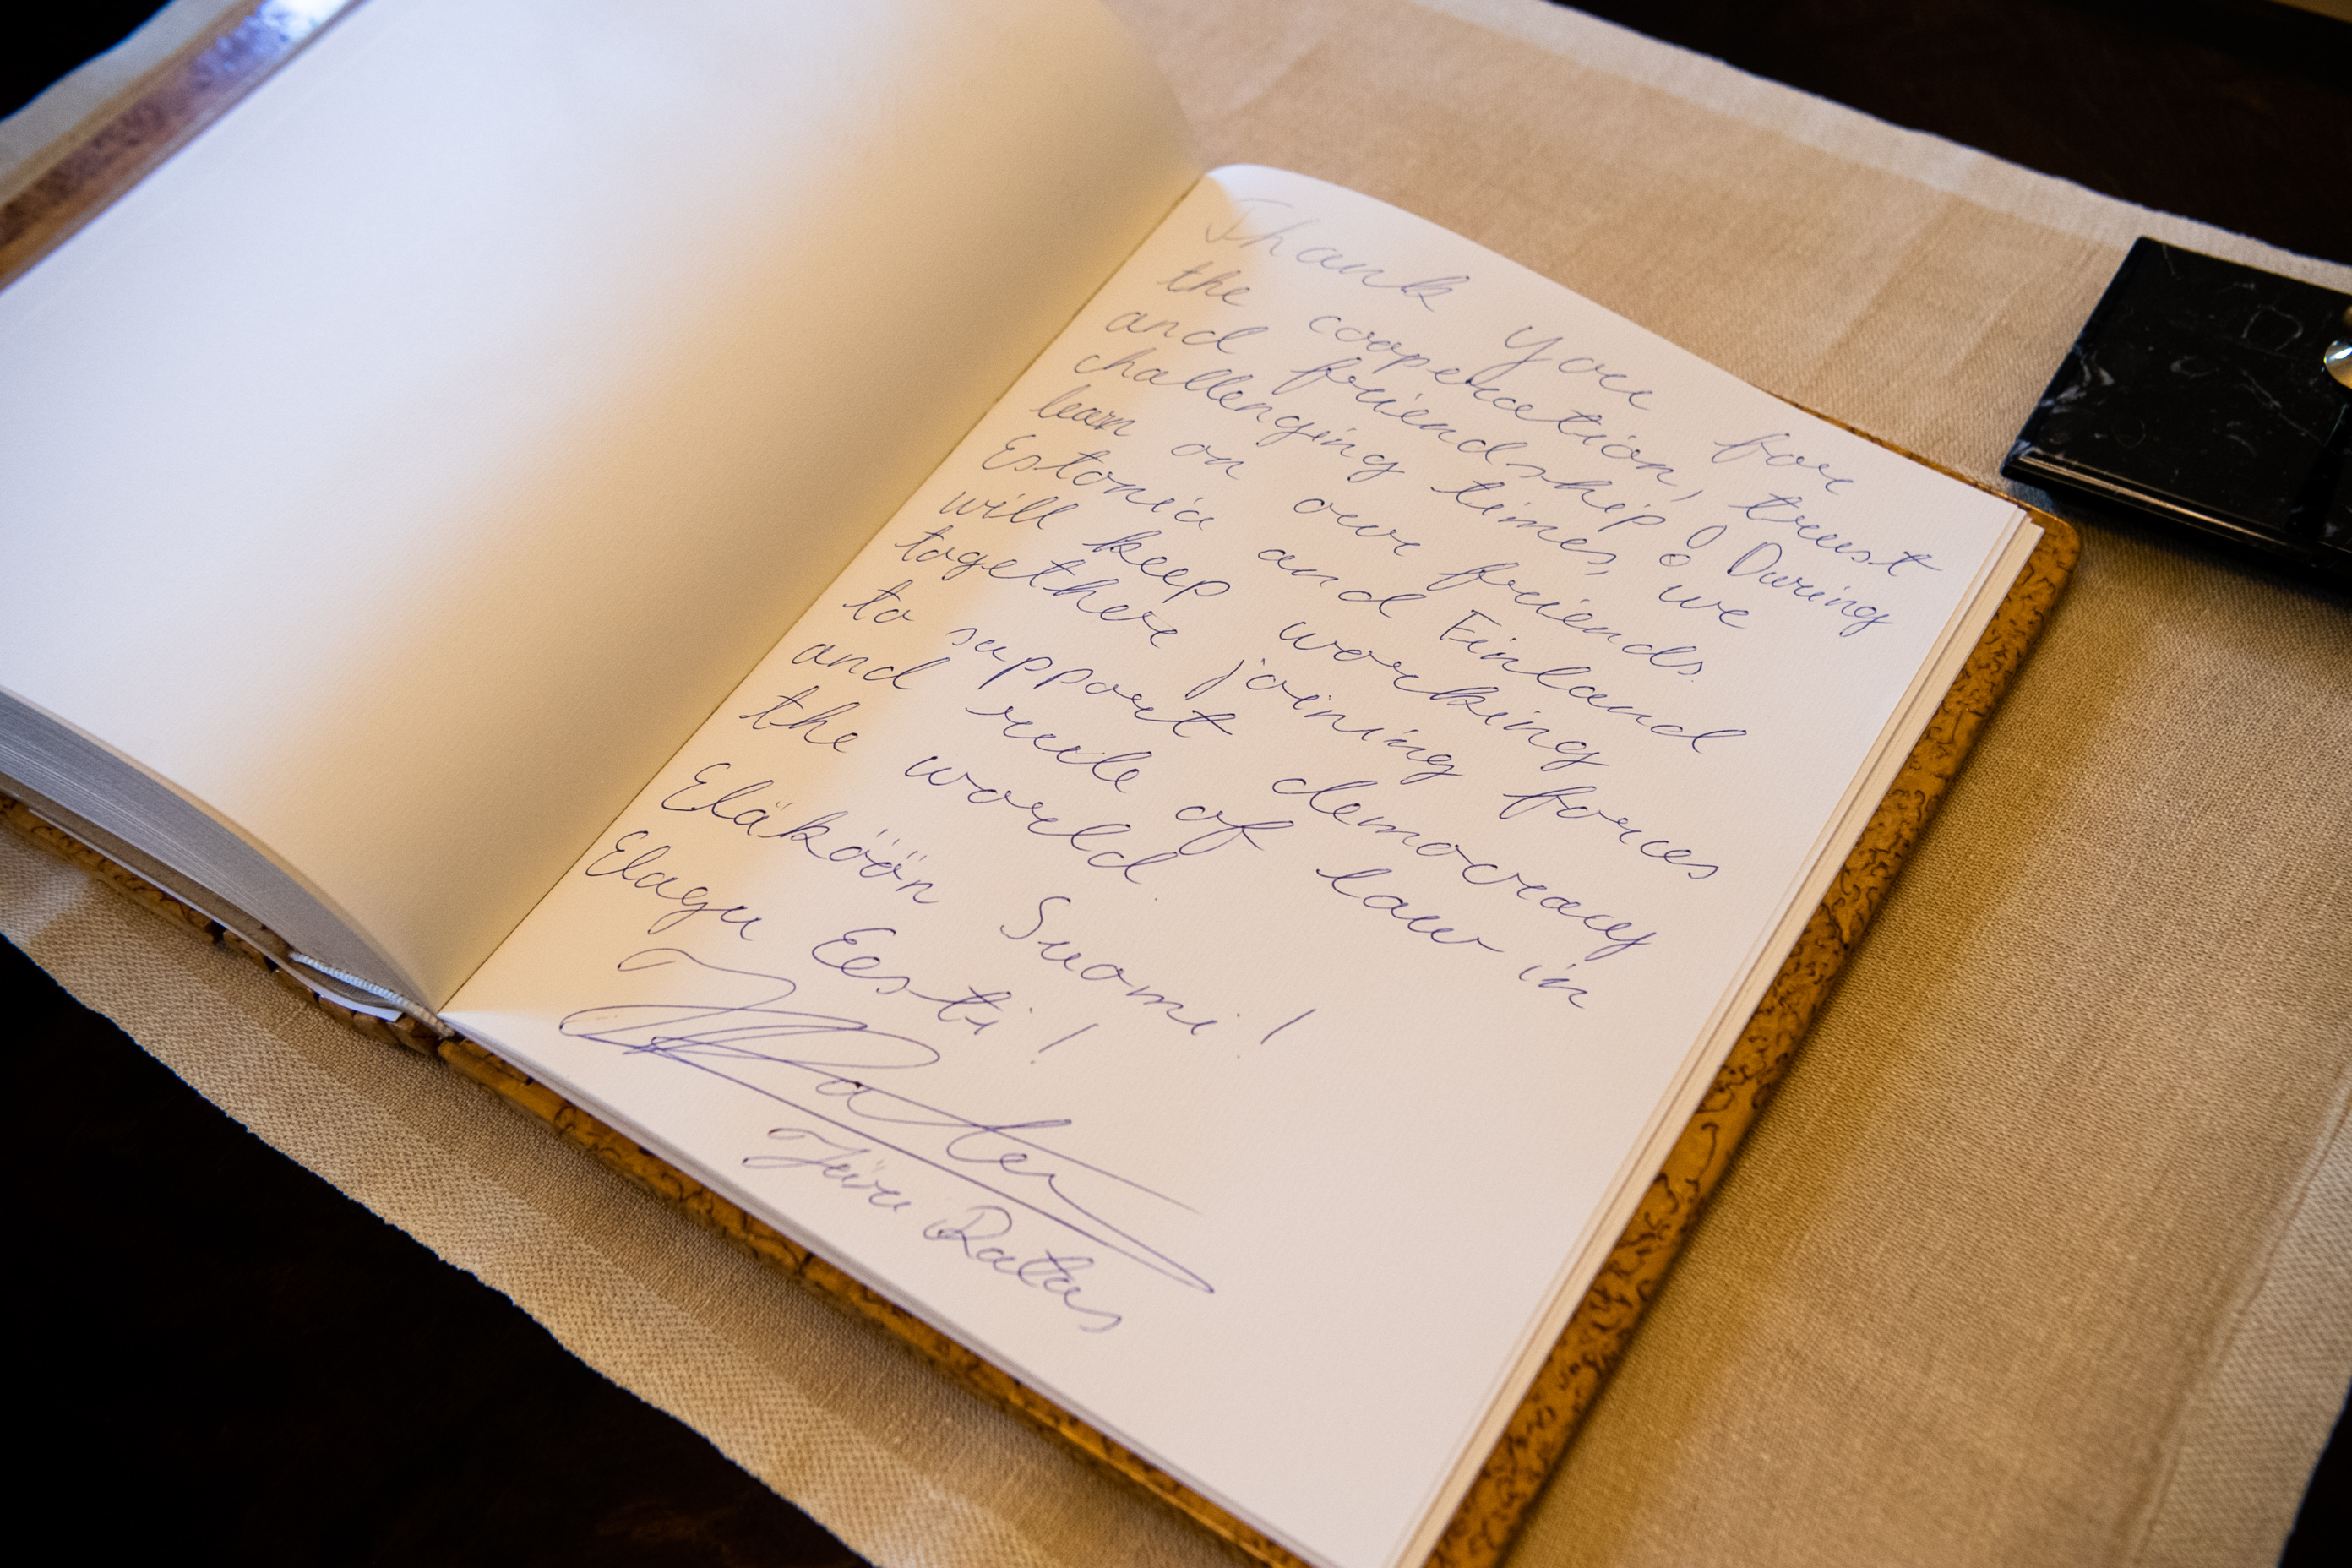 Thank you for
the cooperation, trust
and friendship! During
challenging times, we
lean on our friends.
Estonia and Finland
will keep working
together joining forces
to support democracy
and rule of law in
the world.
Eläköön Suomi!
Elagu Eesti!
Jüri Ratas